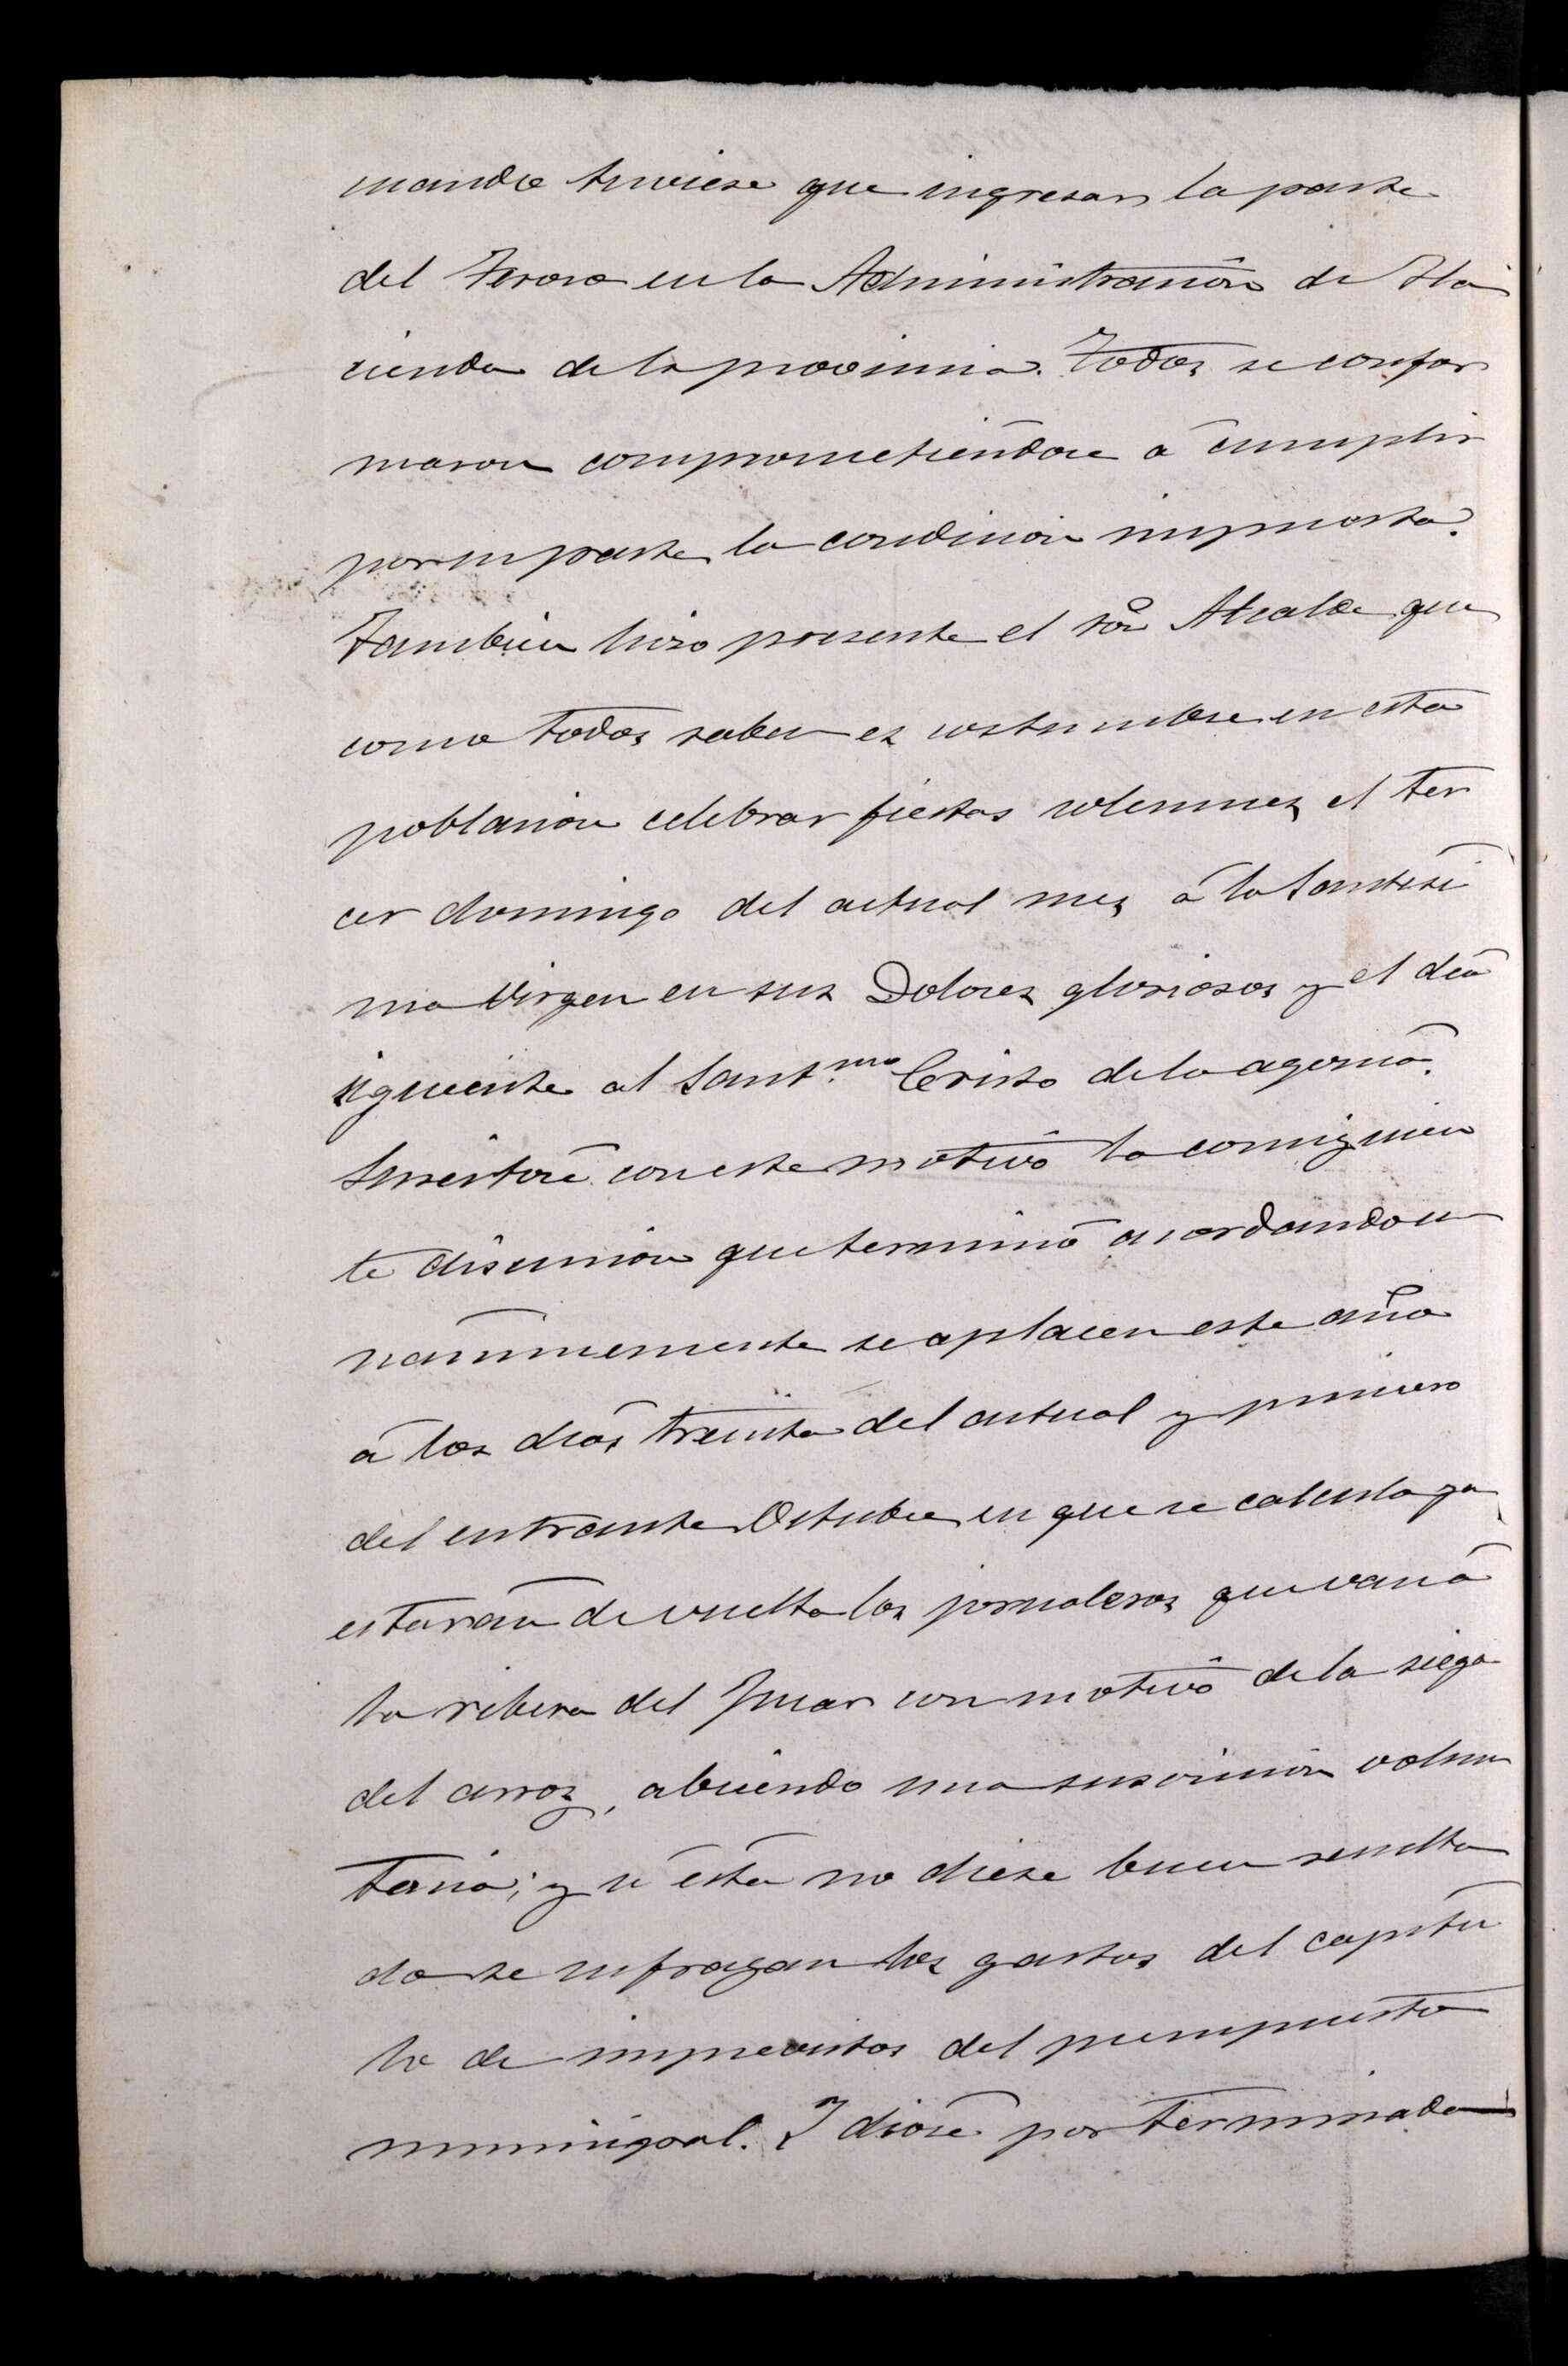 cuando tuviese que ingresar la parte
del Tesoro en la Administración de Ha
cienda de la provincia. Todos se confor
maron comprometiéndose á cumplir
por su parte la condición impuesta.
Tambien hizo presente el Sor Alcalde que
como todos saben es costumbre en esta
población celebrar fiestas solemnes el ter
cer domingo del actual mes á la Santísi
ma Virgen en sus Dolores gloriosos y el día
siguiente al Sant.mo Cristo de la agonía.
Suscitóse con este motivo la consiguien
te discusión que terminó acordando u
nánimemente se aplacen este año
á los días treinta del actual y primero
del entrante Octubre en que se calcula ya
estarán de vuelta los jornaleros que van á
la ribera del Jucar con motivo de la siega
del arroz, abriendo una suscrición volun
taria; y si ésta no diese buen resulta
do se sufragan los gastos del capítu
lo de imprevistos del presupuesto
municipal. Y dióse por terminada